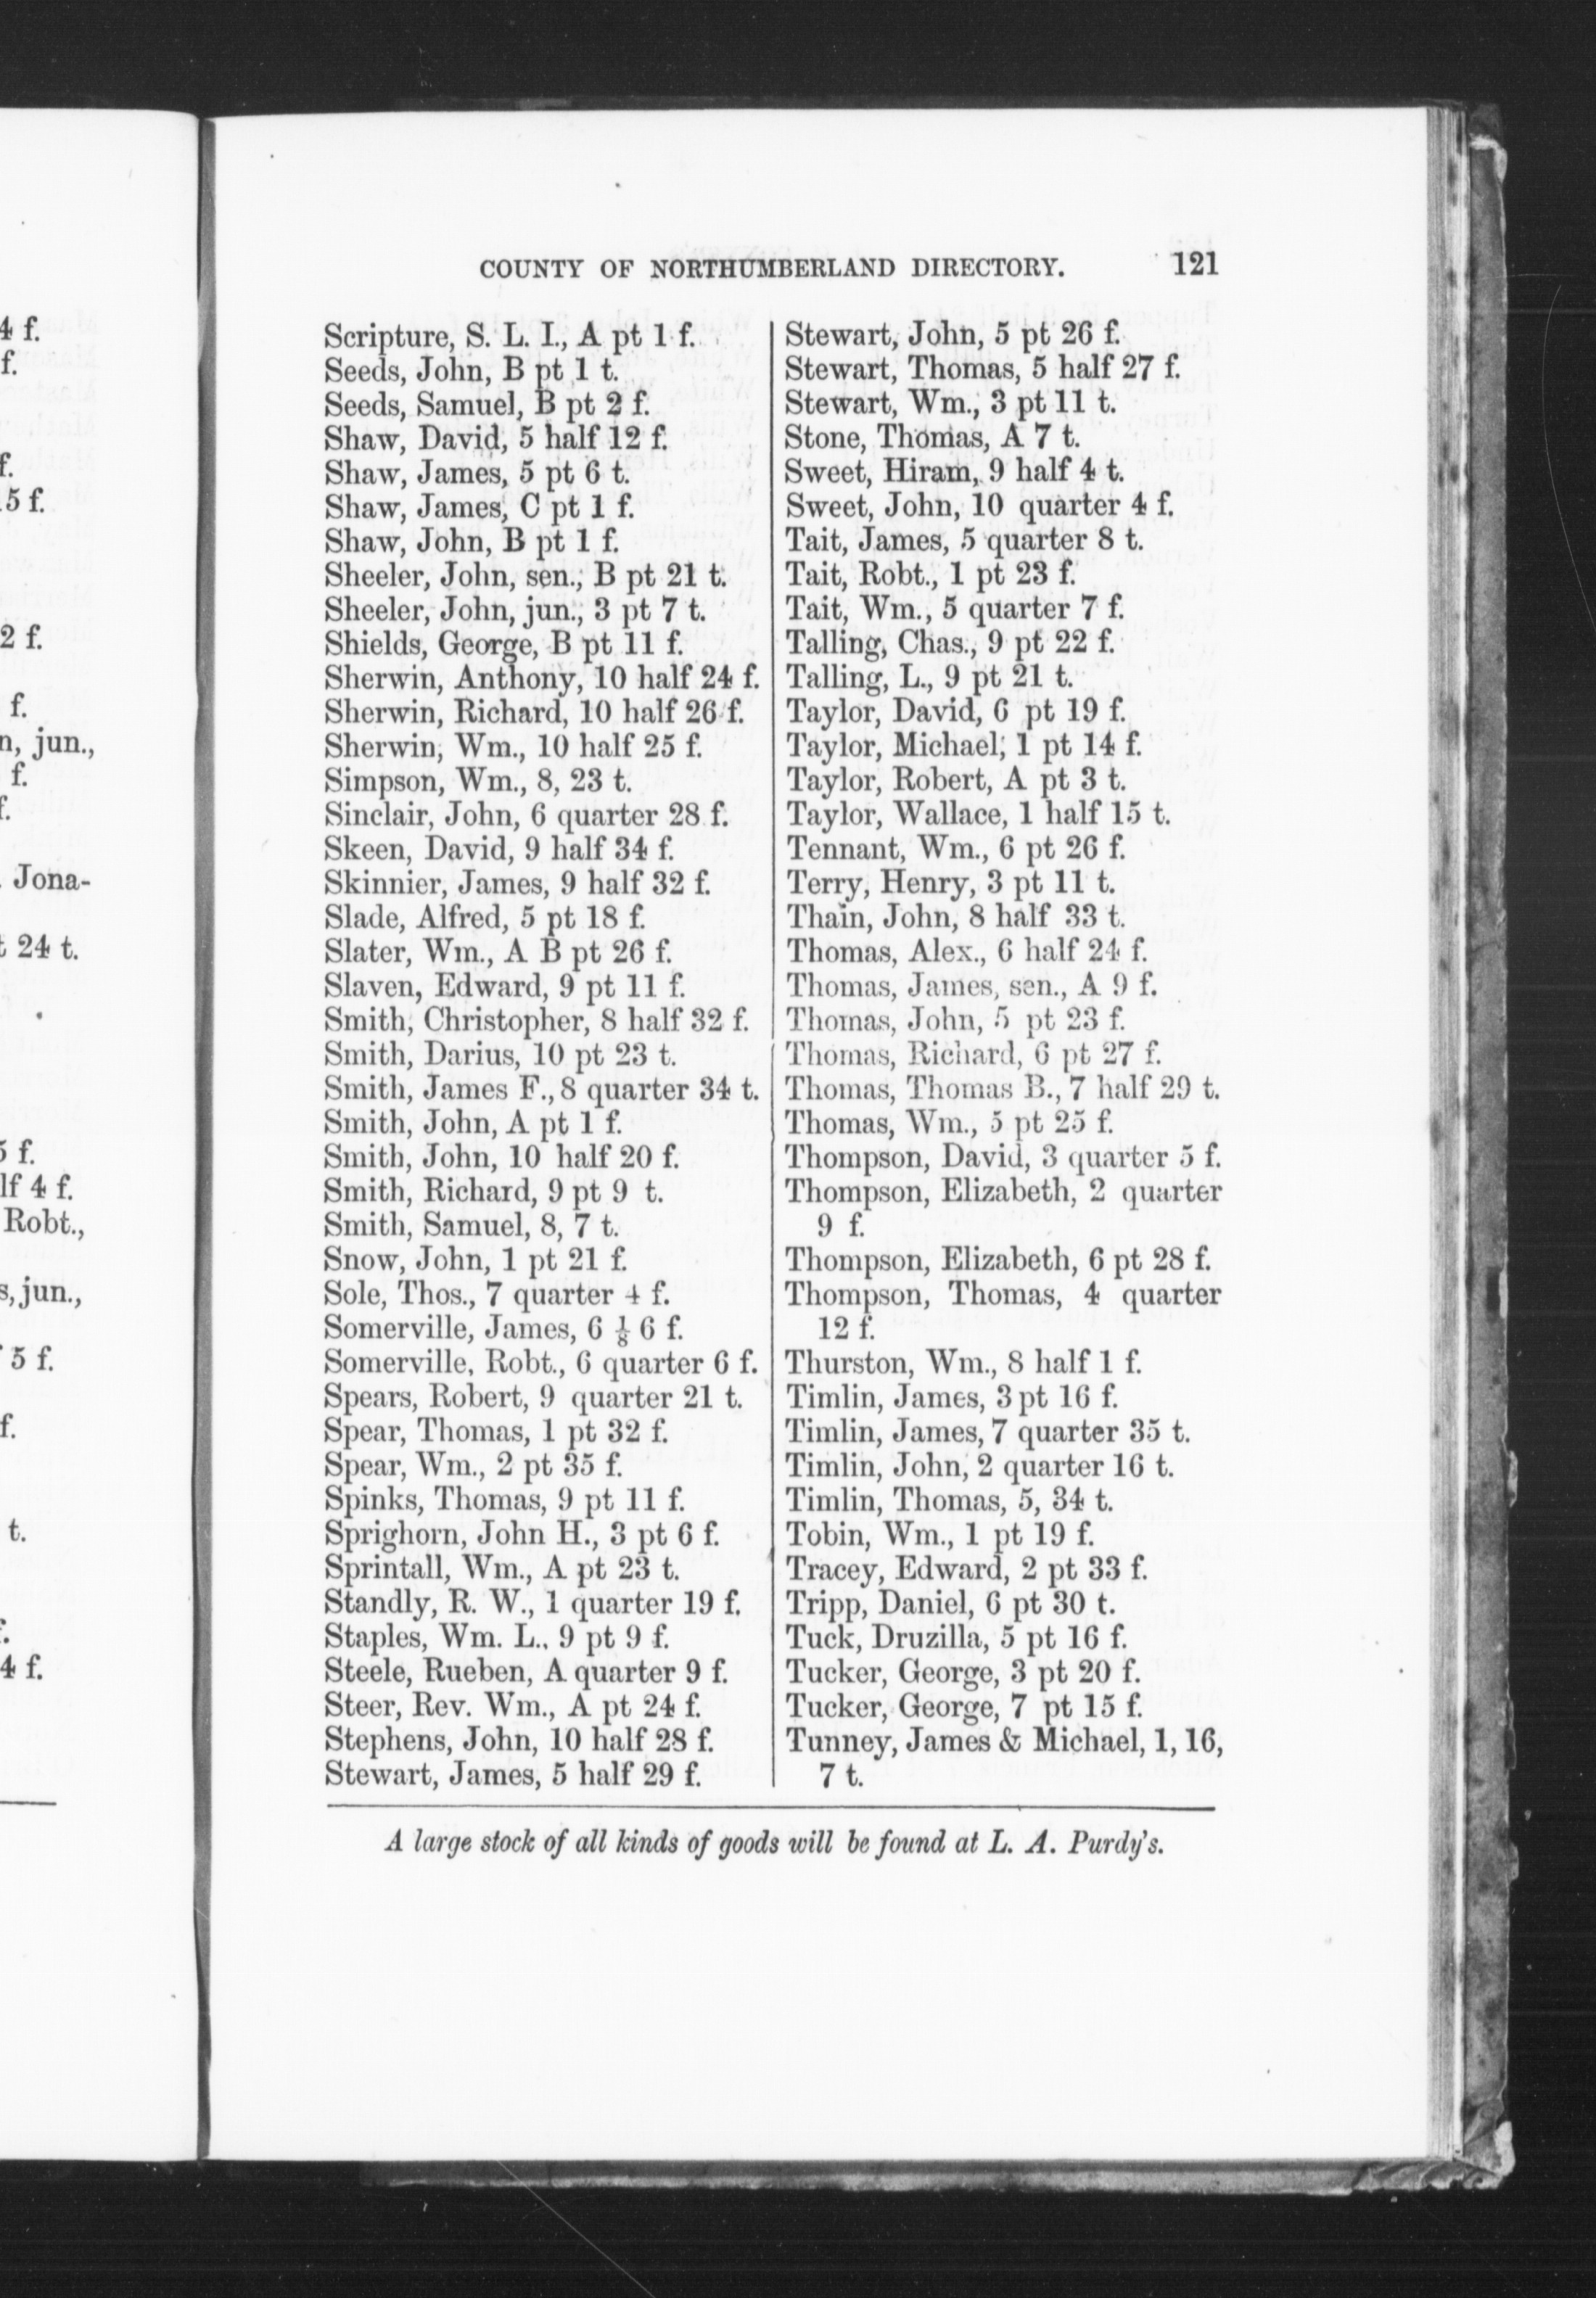 4 f.
f.
f.
5 f.
2 f.
f.
n, jun.,
f.
f.
Jona-
24 t.
5 f.
lf 4 f.
Robt.,
s, jun.,
5 f.
f.
t.
4 f.
COUNTY OF NORTHUMBERLAND DIRECTORY. 121
Scripture, S. L. I., A pt 1 f.
Seeds, John, B pt 1 t.
Seeds, Samuel, B pt 2 f.
Shaw, David, 5 half 12 f.
Shaw, James, 5 pt 6 t.
Shaw, James, C pt 1 f.
Shaw, John, B pt 1 f.
Sheeler, John, sen., B pt 21 t.
Sheeler, John, jun., 3 pt 7 t.
Shields, George, B pt 11 f.
Sherwin, Anthony, 10 half 24 f.
Sherwin, Richard, 10 half 26 f.
Sherwin, Wm., 10 half 25 f.
Simpson, Wm., 8, 23 t.
Sinclair, John, 6 quarter 28 f.
Skeen, David, 9 half 34 f.
Skinnier, James, 9 half 32 f.
Slade, Alfred, 5 pt 18 f.
Slater, Wm., A B pt 26 f.
Slaven, Edward, 9 pt 11 f.
Smith, Christopher, 8 half 32 f.
Smith, Darius, 10 pt 23 t.
Smith, James F., 8 quarter 34 t.
Smith, John, A pt 1 f.
Smith, John, 10 half 20 f.
Smith, Richard, 9 pt 9 t.
Smith, Samuel, 8, 7 t.
Snow, John, 1 pt 21 f.
Sole, Thos., 7 quarter 4 f.
Somerville, James, 6 ⅛ 6 f.
Somerville, Robt., 6 quarter 6 f.
Spears, Robert, 9 quarter 21 t.
Spear, Thomas, 1 pt 32 f.
Spear, Wm., 2 pt 35 f.
Spinks, Thomas, 9 pt 11 f.
Sprighorn, John H., 3 pt 6 f.
Sprintall, Wm., A pt 23 t.
Standly, R. W., 1 quarter 19 f.
Staples, Wm. L., 9 pt 9 f.
Steele, Rueben, A quarter 9 f.
Steer, Rev. Wm., A pt 24 f.
Stephens, John, 10 half 28 f.
Stewart, James, 5 half 29 f.
Stewart, John, 5 pt 26 f.
Stewart, Thomas, 5 half 27 f.
Stewart, Wm., 3 pt 11 t.
Stone, Thomas, A 7 t.
Sweet, Hiram, 9 half 4 t.
Sweet, John, 10 quarter 4 f.
Tait, James, 5 quarter 8 t.
Tait, Robt., 1 pt 23 f.
Tait, Wm., 5 quarter 7 f.
Talling, Chas., 9 pt 22 f.
Talling, L., 9 pt 21 t.
Taylor, David, 6 pt 19 f.
Taylor, Michael, 1 pt 14 f.
Taylor, Robert, A pt 3 t.
Taylor, Wallace, 1 half 15 t.
Tennant, Wm., 6 pt 26 f.
Terry, Henry, 3 pt 11 t.
Thain, John, 8 half 33 t.
Thomas, Alex., 6 half 24 f.
Thomas, James, sen., A 9 f.
Thomas, John, 5 pt 23 f.
Thomas, Richard, 6 pt 27 f.
Thomas, Thomas B., 7 half 29 t.
Thomas, Wm., 5 pt 25 f.
Thompson, David, 3 quarter 5 f.
Thompson, Elizabeth, 2 quarter
9 f.
Thompson, Elizabeth, 6 pt 28 f.
Thompson, Thomas, 4 quarter
12 f.
Thurston, Wm., 8 half 1 f.
Timlin, James, 3 pt 16 f.
Timlin, James, 7 quarter 35 t.
Timlin, John, 2 quarter 16 t.
Timlin, Thomas, 5, 34 t.
Tobin, Wm., 1 pt 19 f.
Tracey, Edward, 2 pt 33 f.
Tripp, Daniel, 6 pt 30 t.
Tuck, Druzilla, 5 pt 16 f.
Tucker, George, 3 pt 20 f.
Tucker, George, 7 pt 15 f.
Tunney, James & Michael, 1, 16,
7 t.
A large stock of all kinds of goods will be found at L. A. Purdy's.